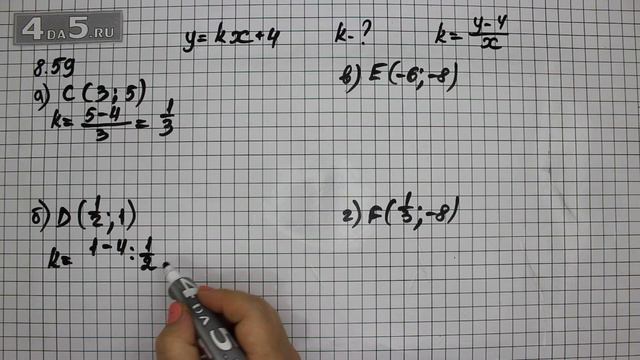 4DA5.RU
y=kx+4 k-? k=(y-4)/x
8.59
а) C(3;5)
k=(5-4)/3=1/3
в) E(-6;-8)
б) D(1/2;1)
k= 1-4:1/2
г) F(1/3;-8)
4 DVA 5